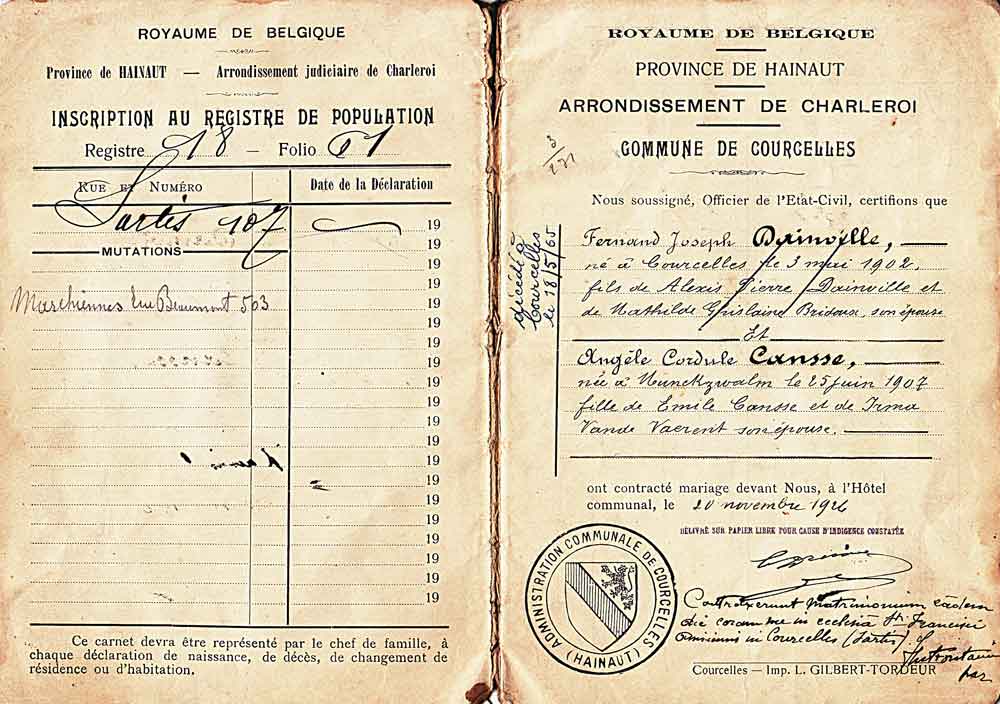 ROYAUME DE BELGIQUE
Province de HAINAUT — Arrondissement judiciaire de Charleroi
INSCRIPTION AU REGISTRE DE POPULATION
Registre 18 — Folio 61
RUE ET NUMÉRO
Date de la Déclaration
Sartis 107
19
MUTATIONS
19
19
19
Marchiennes rue Beaumont 503
19
19
19
19
19
19
19
19
19
19
19
19
19
19
19
19
Ce carnet devra être représenté par le chef de famille, à
chaque déclaration de naissance, de décès, de changement de
résidence ou d'habitation.
ROYAUME DE BELGIQUE
PROVINCE DE HAINAUT
ARRONDISSEMENT DE CHARLEROI
COMMUNE DE COURCELLES
3/171
Nous soussigné, Officier de l'Etat-Civil, certifions que
décédé à
Courcelles
le 18/5/65
Fernand Joseph Dainville,
né à Courcelles le 3 mai 1902,
fils de Alexis Pierre Dainville et
de Mathilde Ghislaine Bridoux, son épouse
Et
Angèle Cordule Cansse,
née à Munckzwalm le 25 juin 1907
fille de Emile Cansse et de Irma
Vande Vaerent son épouse.
ont contracté mariage devant Nous, à l'Hôtel
communal, le 20 novembre 1926
DÉLIVRÉ SUR PAPIER LIBRE POUR CAUSE D'INDIGENCE CONSTATÉE
ADMINISTRATION COMMUNALE DE COURCELLES
(HAINAUT)
Contraxerunt matrimonium eadem
die coram me in ecclesia Sti Francisci
in Courcelles (Sartis)
Courcelles — Imp. L. GILBERT-TORDEUR